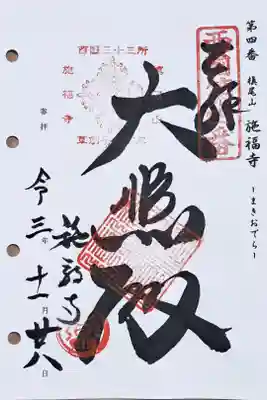 第四番 槇尾山 施福寺
-まきおでら-
西国第四番
西国三十三所
施福寺
奉拝
大悲殿
施福寺
令三年十一月廿八日